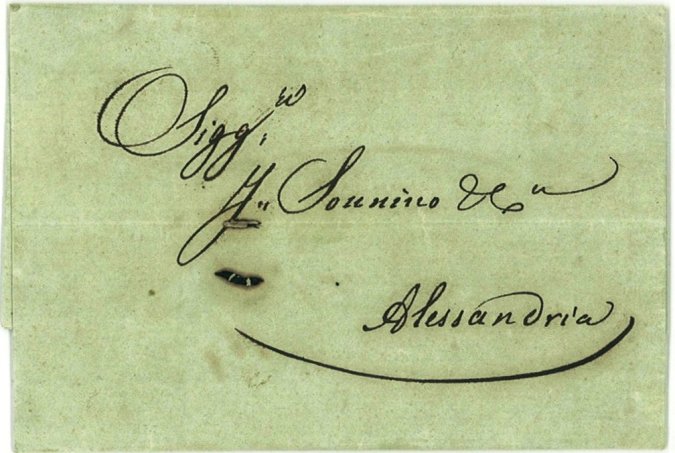 Sigg.ri
J.n Sonnino & C.a
Alessandria